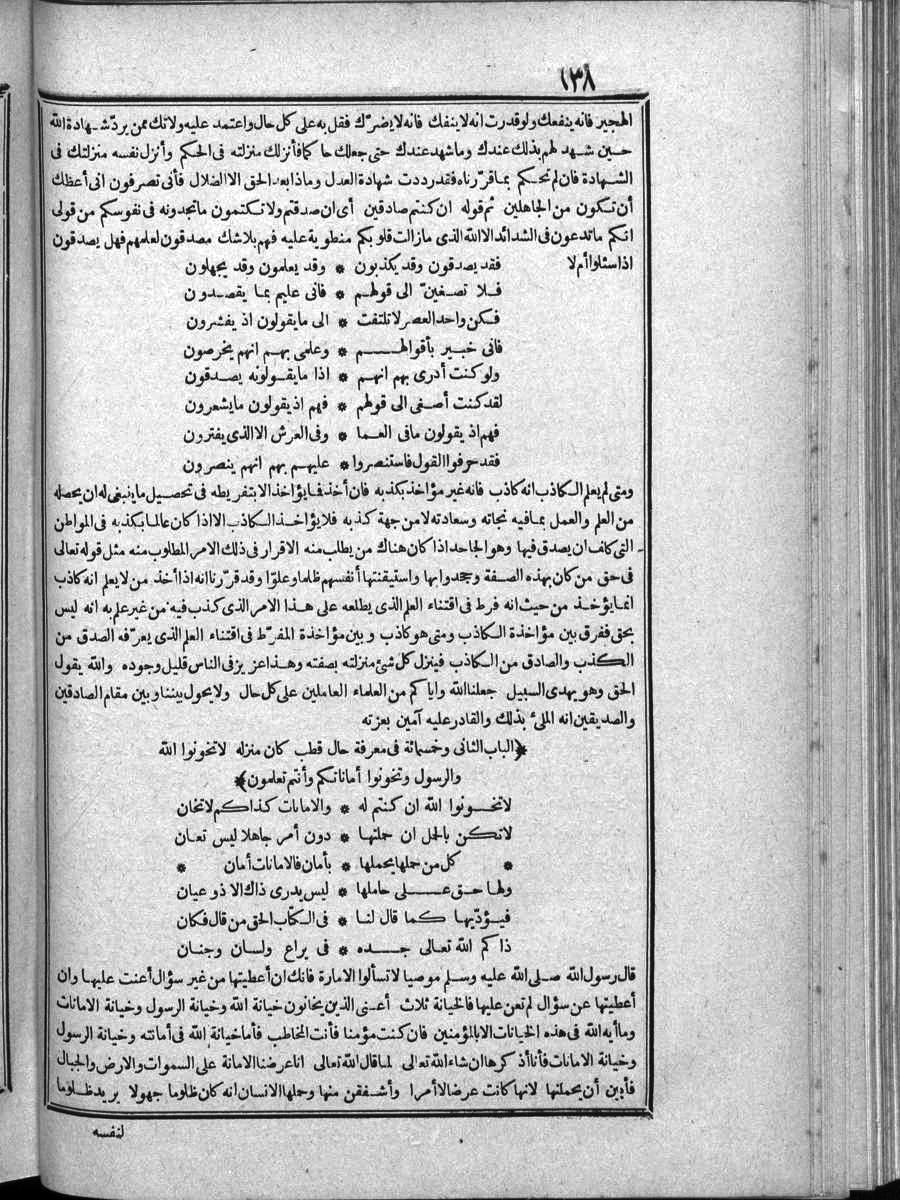 ١٣٨
الهجير فانه ينفعك ولو قدرت انه لا ينفك فانه لا يضرّك فقل به على كل حال واعتمد عليه ولا تك ممن يردّ شهادة الله
حين شهد لهم بذلك عندك وما شهد عندك حتى جعلك حاكما فأنزلك منزلته فى الحكم وأنزل نفسه منزلتك فى
الشهادة فان لم تحكم بما قرّرناه فقد رددت شهادة العدل وماذا بعد الحق الا الضلال فأنى تصرفون انى أعظك
أن تكون من الجاهلين ثم قوله ان كنتم صادقين أى ان صدقتم ولا تكتمون ما تجدونه فى نفوسكم من قولى
انكم ما تدعون فى الشدائد الا الله الذى ما زالت قلوبكم منطوية عليه فهم بلا شك مصدقون لعلمهم فهل يصدقون
اذا سئلوا أم لا
فقد يصدقون وقد يكذبون * وقد يعلمون وقد يجهلون
فلا تصغينّ الى قولهم * فانى عليم بما يقصدون
فكن واحد العصر لا تلتفت * الى ما يقولون اذ يفشرون
فانى خبير بأقوالهم * وعلمى بهم انهم يخرصون
ولو كنت أدرى بهم انهم * اذا ما يقولونه يصدقون
لقد كنت أصغى الى قولهم * فهم اذ يقولون ما يشعرون
فهم اذ يقولون ما فى العما * وفى العرش الا الذى يفترون
فقد حرفوا القول فاستنصروا * عليهم بهم انهم ينصرون
ومتى لم يعلم الكاذب انه كاذب فانه غير مؤاخذ بكذبه فان أخذ فما يؤاخذ الا بتفريطه فى تحصيل ما ينبغى له ان يحصله
من العلم والعمل بما فيه نجاته وسعادته لا من جهة كذبه فلا يؤاخذ الكاذب الا اذا كان عالما بكذبه فى المواطن
التى كلف ان يصدق فيها وهو الجاحد اذا كان هناك من يطلب منه الاقرار فى ذلك الامر المطلوب منه مثل قوله تعالى
فى حق من كان بهذه الصفة وجحدوا بها واستيقنتها أنفسهم ظلما وعلوّا وقد قرّرنا انه اذا أخذ من لا يعلم انه كاذب
انما يؤخذ من حيث انه فرط فى اقتناء العلم الذى يطلعه على هذا الامر الذى كذب فيه من غير علم به انه ليس
بحق ففرق بين مؤاخذة الكاذب ومتى هو كاذب وبين مؤاخذة المفرّط فى اقتناء العلم الذى يعرّفه الصدق من
الكذب والصادق من الكاذب فينزل كل شئ منزلته بصفته وهذا عزيز فى الناس قليل وجوده والله يقول
الحق وهو يهدى السبيل جعلنا الله واياكم من العلماء العاملين على كل حال ولا يحول بيننا وبين مقام الصادقين
والصديقين انه الملىء بذلك والقادر عليه آمين بعزته
﴿الباب الثانى وخمسمائة فى معرفة حال قطب كان منزله لا تخونوا الله
والرسول وتخونوا أماناتكم وأنتم تعلمون﴾
لا تخونوا الله ان كنتم له * والامانات كذاكم لا تخان
لا تكن بالحل ان حملتها * دون أمر جاهلا ليس تعان
* كل من حملها يحملها * بأمان فالامانات أمان *
ولها حق على حاملها * ليس يدرى ذاك الا ذو عيان
فيؤدّيها كما قال لنا * فى الكتاب الحق من قال فكان
ذاكم الله تعالى جده * فى يراع ولسان وجنان
قال رسول الله صلى الله عليه وسلم موصيا لا تسألوا الامارة فانك ان أعطيتها من غير سؤال أعنت عليها وان
أعطيتها عن سؤال لم تعن عليها فالخيانة ثلاث أعنى الذين يخانون خيانة الله وخيانة الرسول وخيانة الامانات
وما أيه الله فى هذه الخيانات الا بالمؤمنين فان كنت مؤمنا فأنت المخاطب فأما خيانة الله فى أمانته وخيانة الرسول
وخيانة الامانات فأنا أذكرها ان شاء الله تعالى لما قال الله تعالى انا عرضنا الامانة على السموات والارض والجبال
فأبين أن يحملنها لانها كانت عرضا لا أمرا وأشفقن منها وحملها الانسان انه كان ظلوما جهولا يريد ظلوما
لنفسه